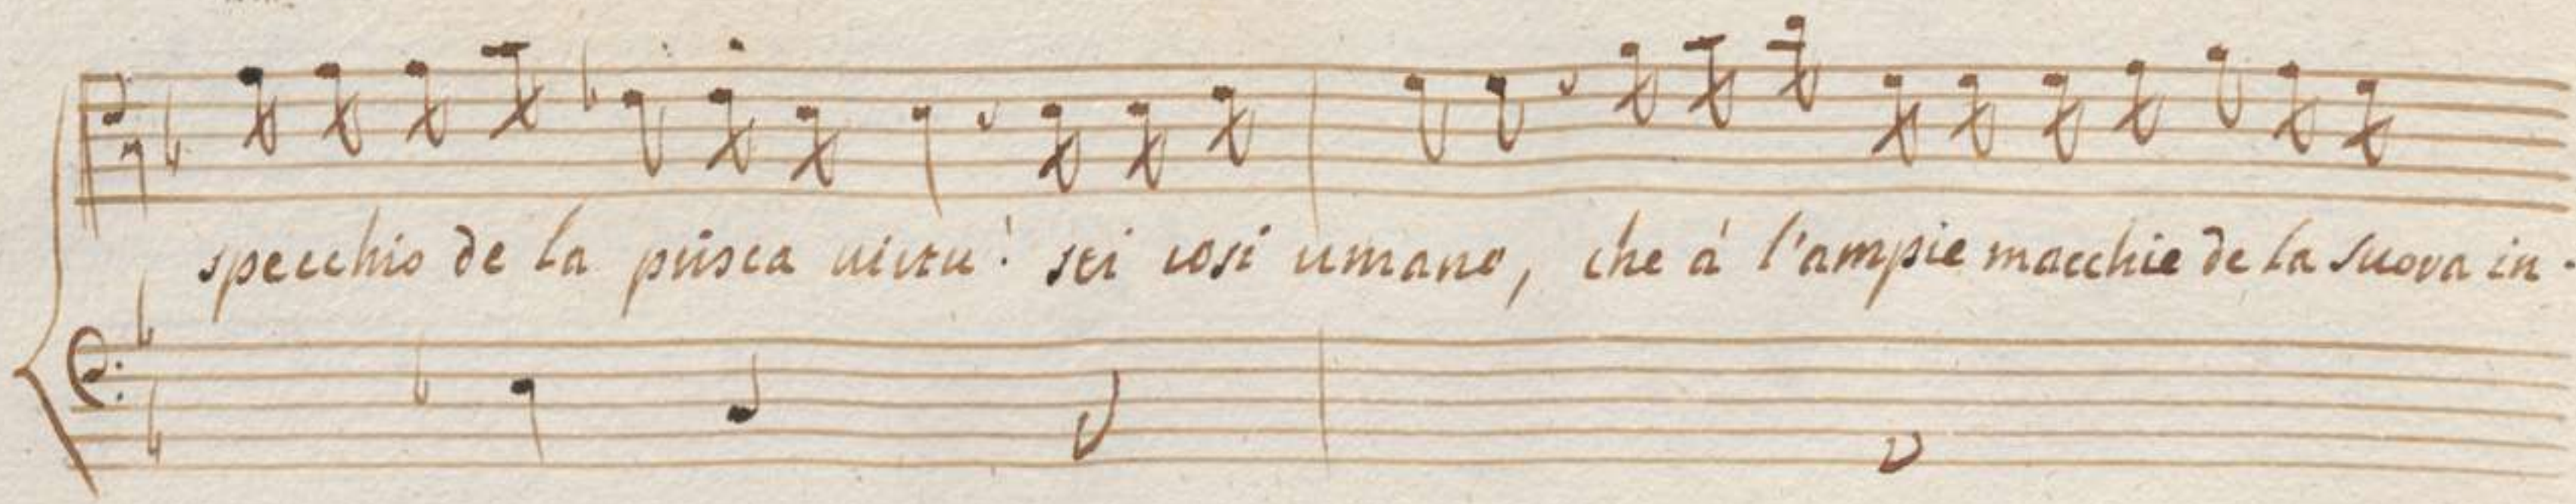 specchio de la prisca uirtu! sei così umano, che à l'ampie macchie de la suora in-